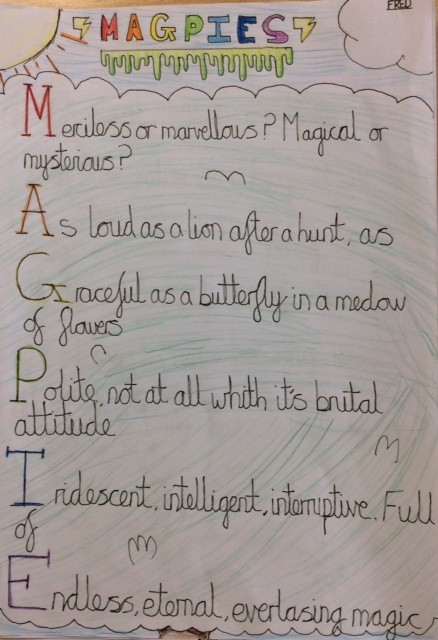 FRED
MAGPIES
Merciless or marvellous? Magical or
mysterious?
As loud as a lion after a hunt, as
Graceful as a butterfly in a medow
of flowers
Polite, not at all whith it's brutal
attitude
Iridescent, intelligent, interruptive. Full
of
Endless, eternal, everlasing magic